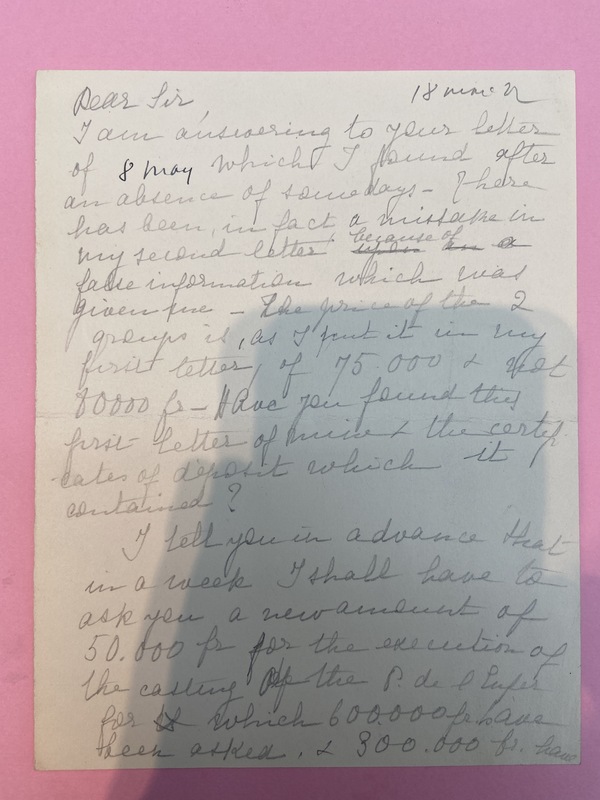 Dear Sir, 18
I am answering to your letter
of 8 may which I found after
an absence of somedays - There
has been, in fact a mistake in
my second letter because of a
false information which was
given me - The price of the 2
groups is, as I put it in my
first letter, of 75.000 & not
80000 fr - Have you found this
first letter of mine & the certifi
cates of deposit which it
contained?
I tell you in advance that
in a week I shall have to
ask you a new amount of
50.000 fr for the execution of
the casting of the P. de l Enfer
for which 600.000 fr. have
been asked. & 300.000 fr. have